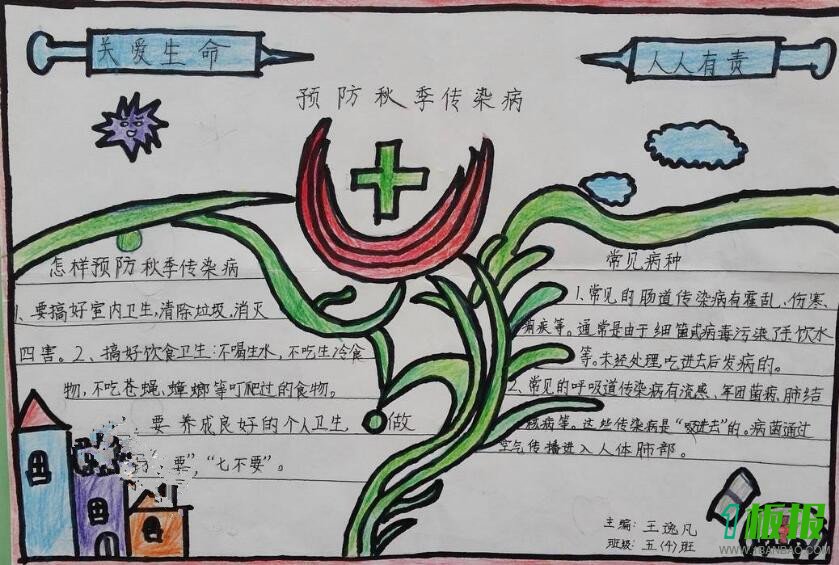 关爱生命
人人有责
预防秋季传染病
怎样预防秋季传染病
1、要搞好室内卫生,清除垃圾,消灭
四害。2、搞好饮食卫生:不喝生水,不吃生冷食
物,不吃苍蝇、蟑螂等叮爬过的食物。
要养成良好的个人卫生 做
要","七不要"。
常见病种
1、常见的肠道传染病有霍乱、伤寒、
痢疾等。通常是由于细菌或病毒污染了手、饮水
等。未经处理,吃进去后发病的。
2、常见的呼吸道传染病有流感、军团菌病、肺结
核病等。这些传染病是"吸进去"的。病菌通过
空气传播进入人体肺部。
主编:王逸凡
班级:五(4)班
1板报
WWW.1BANBAO.COM